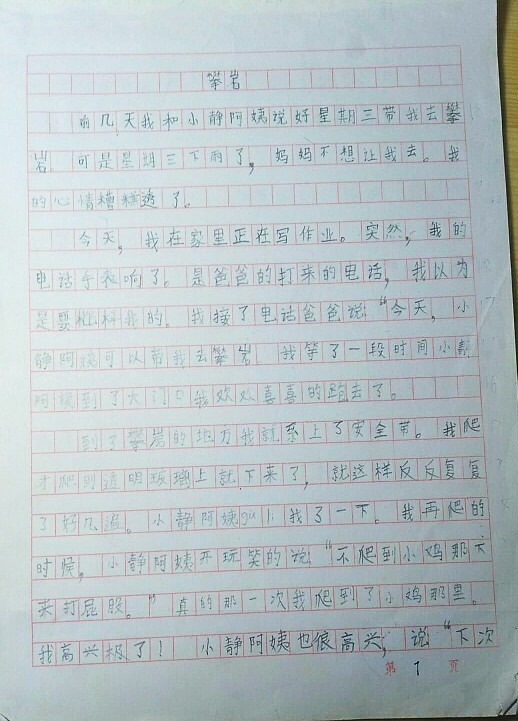 攀岩
前几天我和小静阿姨说好星期三带我去攀
岩。可是星期三下雨了，妈妈不想让我去。我
的心情糟糕透了。
今天，我在家里正在写作业。突然，我的
电话手表响了。是爸爸的打来的电话，我以为
是要检料我的。我接了电话爸爸说“今天，小
静阿姨可以带我去攀岩 我等了一段时间小静
阿姨到了大门口我欢欢喜喜的跑去了。
到了攀岩的地方我就系上了安全带。我爬
才爬到透明玻璃上就下来了，就这样反反复复
了好几遍。小静阿姨gu小我了一下。我再爬的
时候，小静阿姨开玩笑的说“不爬到小鸡那下
来打屁股。”真的那一次我爬到了小鸡那里。
我高兴极了！小静阿姨也很高兴，说“下次
第 1 页